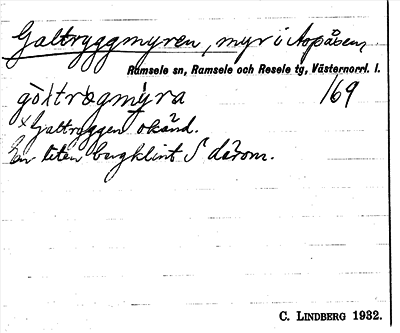 Galtryggmyren, myr i Aspåsen,
Ramsele sn, Ramsele och Resele tg, Västernorrl. l.
gò̀ltrøgmỳra 169
×Galtryggen okänd.
En liten bergklint S därom.
C. LINDBERG 1932.